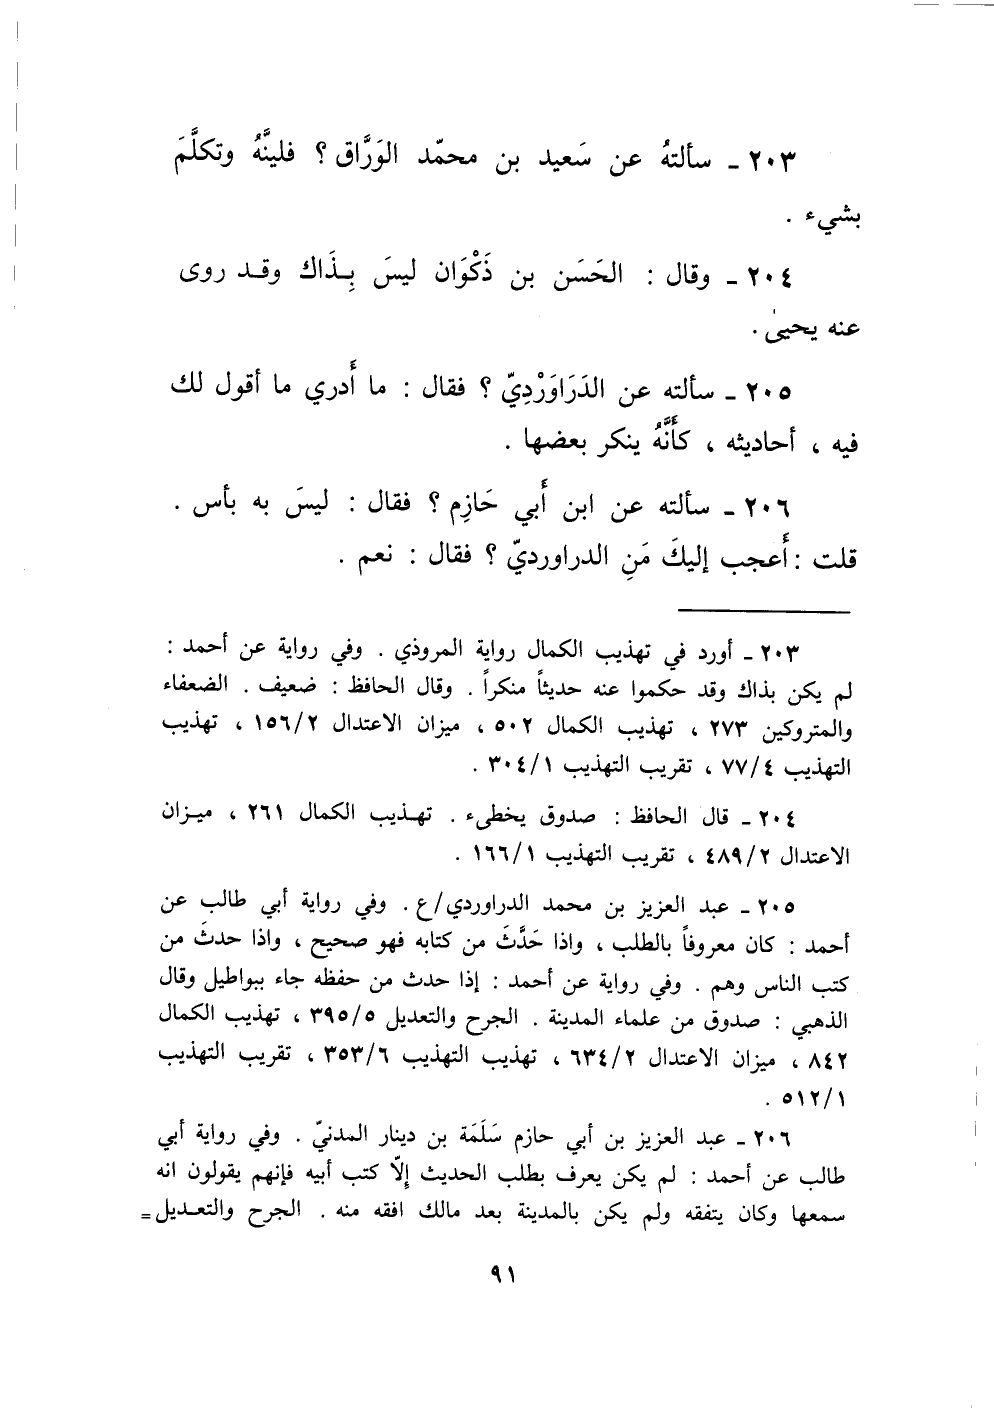 ٢٠٣ ـ سألتهُ عن سَعيد بن محمّد الوَرَّاق ؟ فلينَّهُ وتكلَّمَ
بشيء .
٢٠٤ ـ وقال : الحَسَن بن ذَكْوَان ليسَ بِـذَاك وقـد روى
عنه يحيىٰ .
٢٠٥ ـ سألته عن الدَرَاوَرْدِيّ ؟ فقال : ما أَدري ما أقول لك
فيه ، أحاديثه ، كأَنَّهُ ينكر بعضها .
٢٠٦ ـ سألته عن ابن أَبي حَازِم ؟ فقال : ليسَ به بأس .
قلت : أَعجب إليكَ مَنِ الدراورديّ ؟ فقال : نعم .
٢٠٣ ـ أورد في تهذيب الكمال رواية المروذي . وفي رواية عن أحمد :
لم يكن بذاك وقد حكموا عنه حديثاً منكراً . وقال الحافظ : ضعيف . الضعفاء
والمتروكين ٢٧٣ ، تهذيب الكمال ٥٠٢ ، ميزان الاعتدال ١٥٦/٢ ، تهذيب
التهذيب ٧٧/٤ ، تقريب التهذيب ٣٠٤/١ .
٢٠٤ ـ قال الحافظ : صدوق يخطىء . تهـذيب الكمال ٢٦١ ، ميـزان
الاعتدال ٤٨٩/٢ ، تقريب التهذيب ١٦٦/١ .
٢٠٥ ـ عبد العزيز بن محمد الدراوردي/ع . وفي رواية أبي طالب عن
أحمد : كان معروفاً بالطلب ، واذا حَدَّثَ من كتابه فهو صحيح ، واذا حدثَ من
كتب الناس وهم . وفي رواية عن أحمد : إذا حدث من حفظه جاء ببواطيل وقال
الذهبي : صدوق من علماء المدينة . الجرح والتعديل ٣٩٥/٥ ، تهذيب الكمال
٨٤٢ ، ميزان الاعتدال ٦٣٤/٢ ، تهذيب التهذيب ٣٥٣/٦ ، تقريب التهذيب
٥١٢/١ .
٢٠٦ ـ عبد العزيز بن أبي حازم سَلَمَة بن دينار المدنيّ . وفي رواية أبي
طالب عن أحمد : لم يكن يعرف بطلب الحديث إلّا كتب أبيه فإنهم يقولون انه
سمعها وكان يتفقه ولم يكن بالمدينة بعد مالك افقه منه . الجرح والتعـديل =
٩١